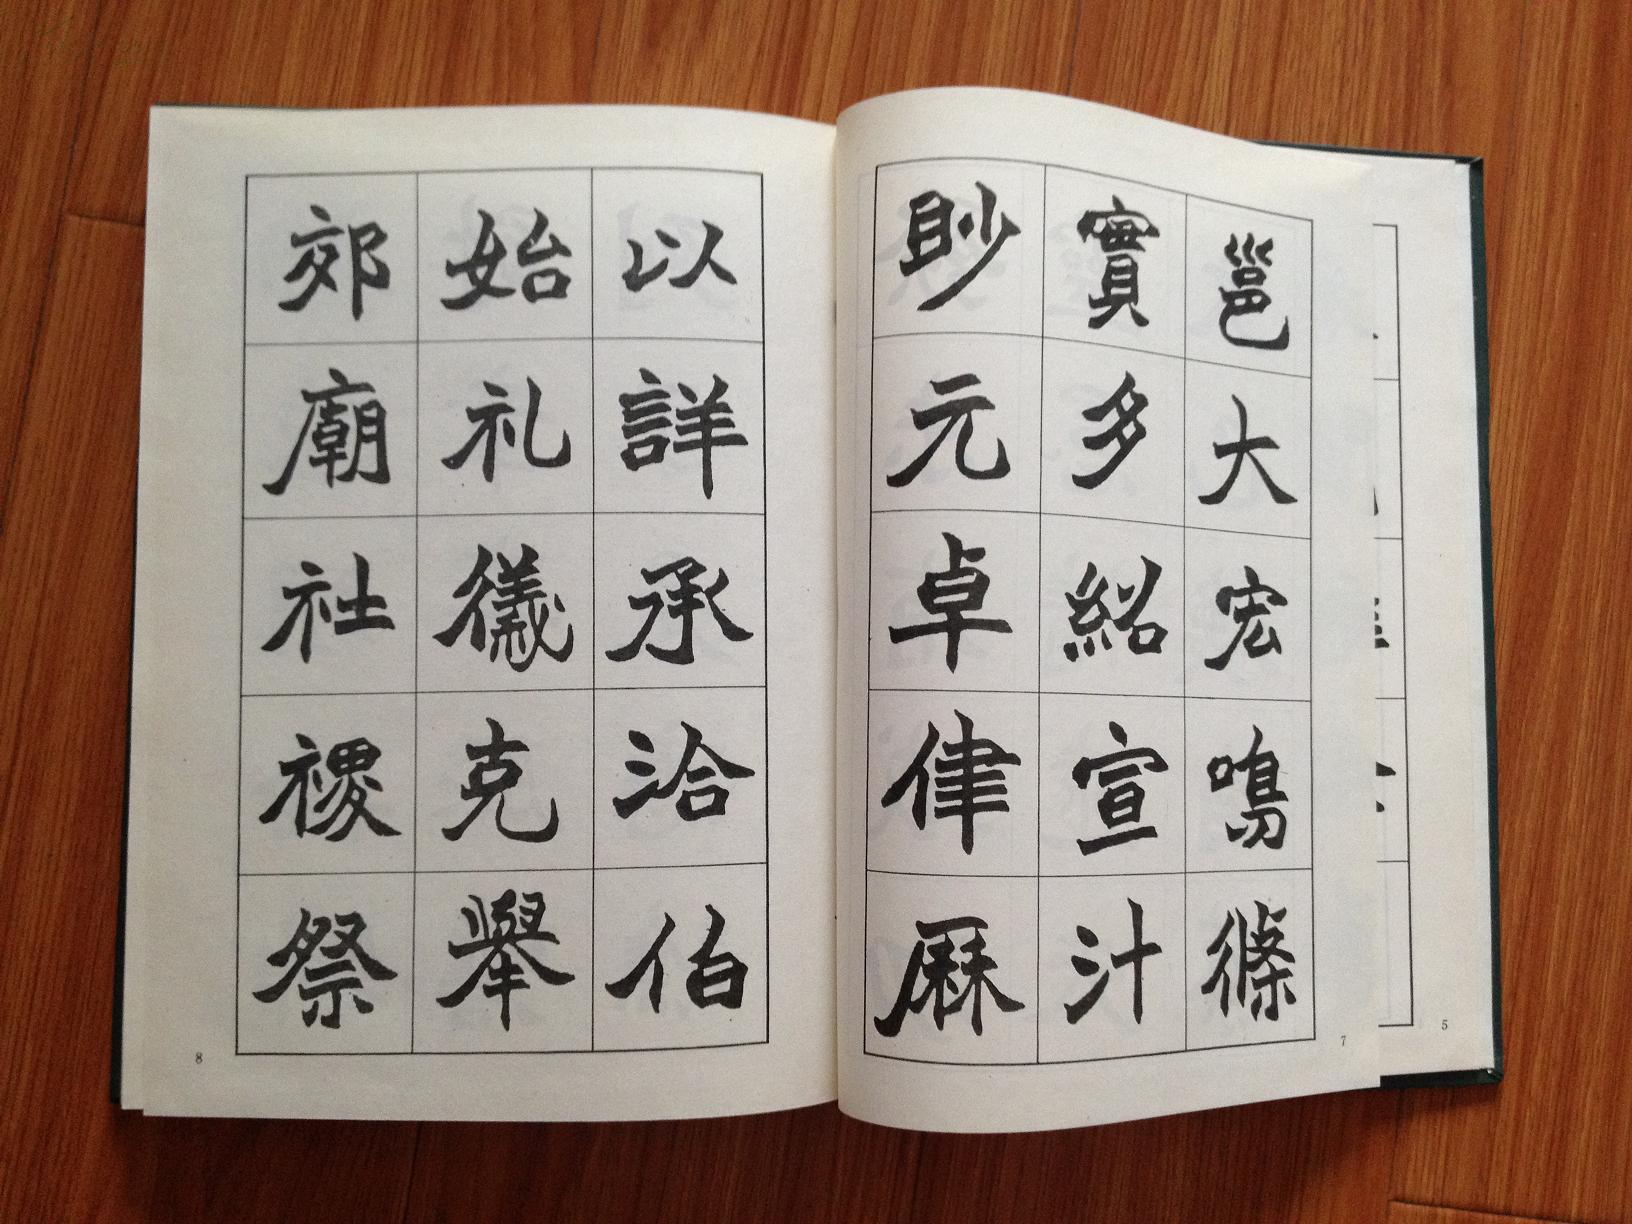 邕大宏鳴條
實多紹宣汁
眇元卓律厤
7
以詳承洽伯
始礼儀克舉
郊廟社稷祭
8
5